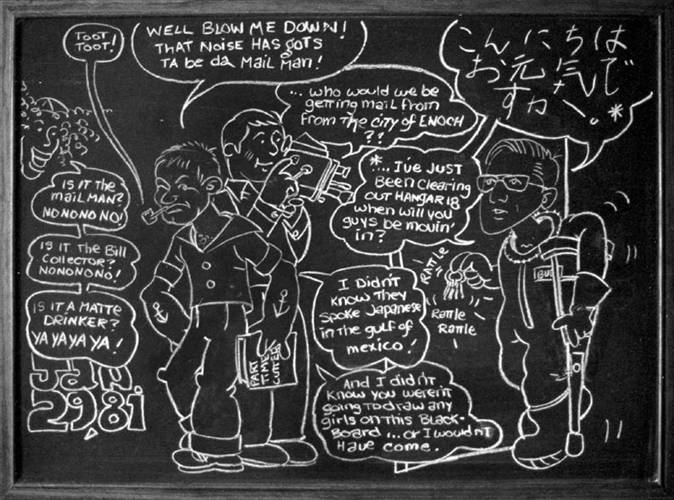 TOOT
TOOT!
WELL BLOW ME DOWN!
THAT NOISE HAS GOTS
TA be da MAIL MAN!
... who would we be
getting mail from
from the city of ENOCH
??
こんにちは
お元気で
すか。*
*... I've JUST
BEEN CLEARING
OUT HANGAR 18
when will you
guys be movin'
in?
IS IT THE
MAILMAN?
NO NO NO NO!
IS IT The Bill
Collector?
NONONONO!
IS IT A MATTE
DRINKER?
YA YA YA YA!
Jan.
29, 81
I Didn't
know they
spoke Japanese
in the gulf of
mexico!
And I didn't
know you weren't
going to draw any
girls on this Black-
Board ... or I wouldn't
Have come.
PART
TIME
CUTTER
RATTLE
Rattle
Rattle